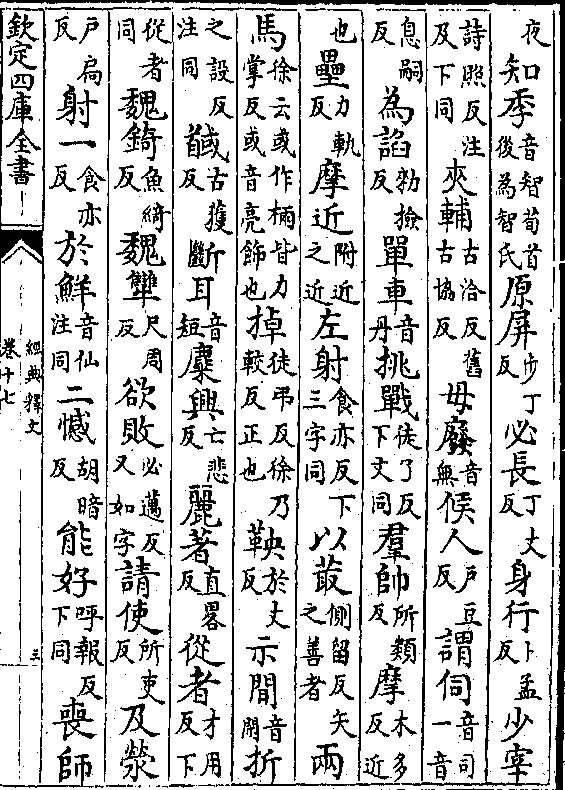 夜知季音智荀首後為智氏原屏步丁反必長丁丈反身行下孟反少宰
詩照反注及下同夾輔古洽反舊古協反毋廢音無候人戶豆反謂伺音司一音
息嗣反為諂勑撿反單車音丹挑戰徒了反下文同羣帥所類反摩木多反近
也壘力軌反摩近附近之近左射食亦反下三字同以菆側留反矢之善者兩
馬徐云或作㭃皆力掌反或音亮飾也掉徒弔反徐乃較反正也鞅於丈反示閒音閑折
之設反注同馘古獲反斷耳音短麋興亡悲反麗著直畧反從者才用反下
從者同魏錡魚綺反魏犨尺周反欲敗必邁反又如字請使所吏反及熒
戶扃反射一食亦反於鮮音仙注同二憾胡暗反能好呼報反下同喪師
欽定四庫全書
經典釋文
卷十七
三